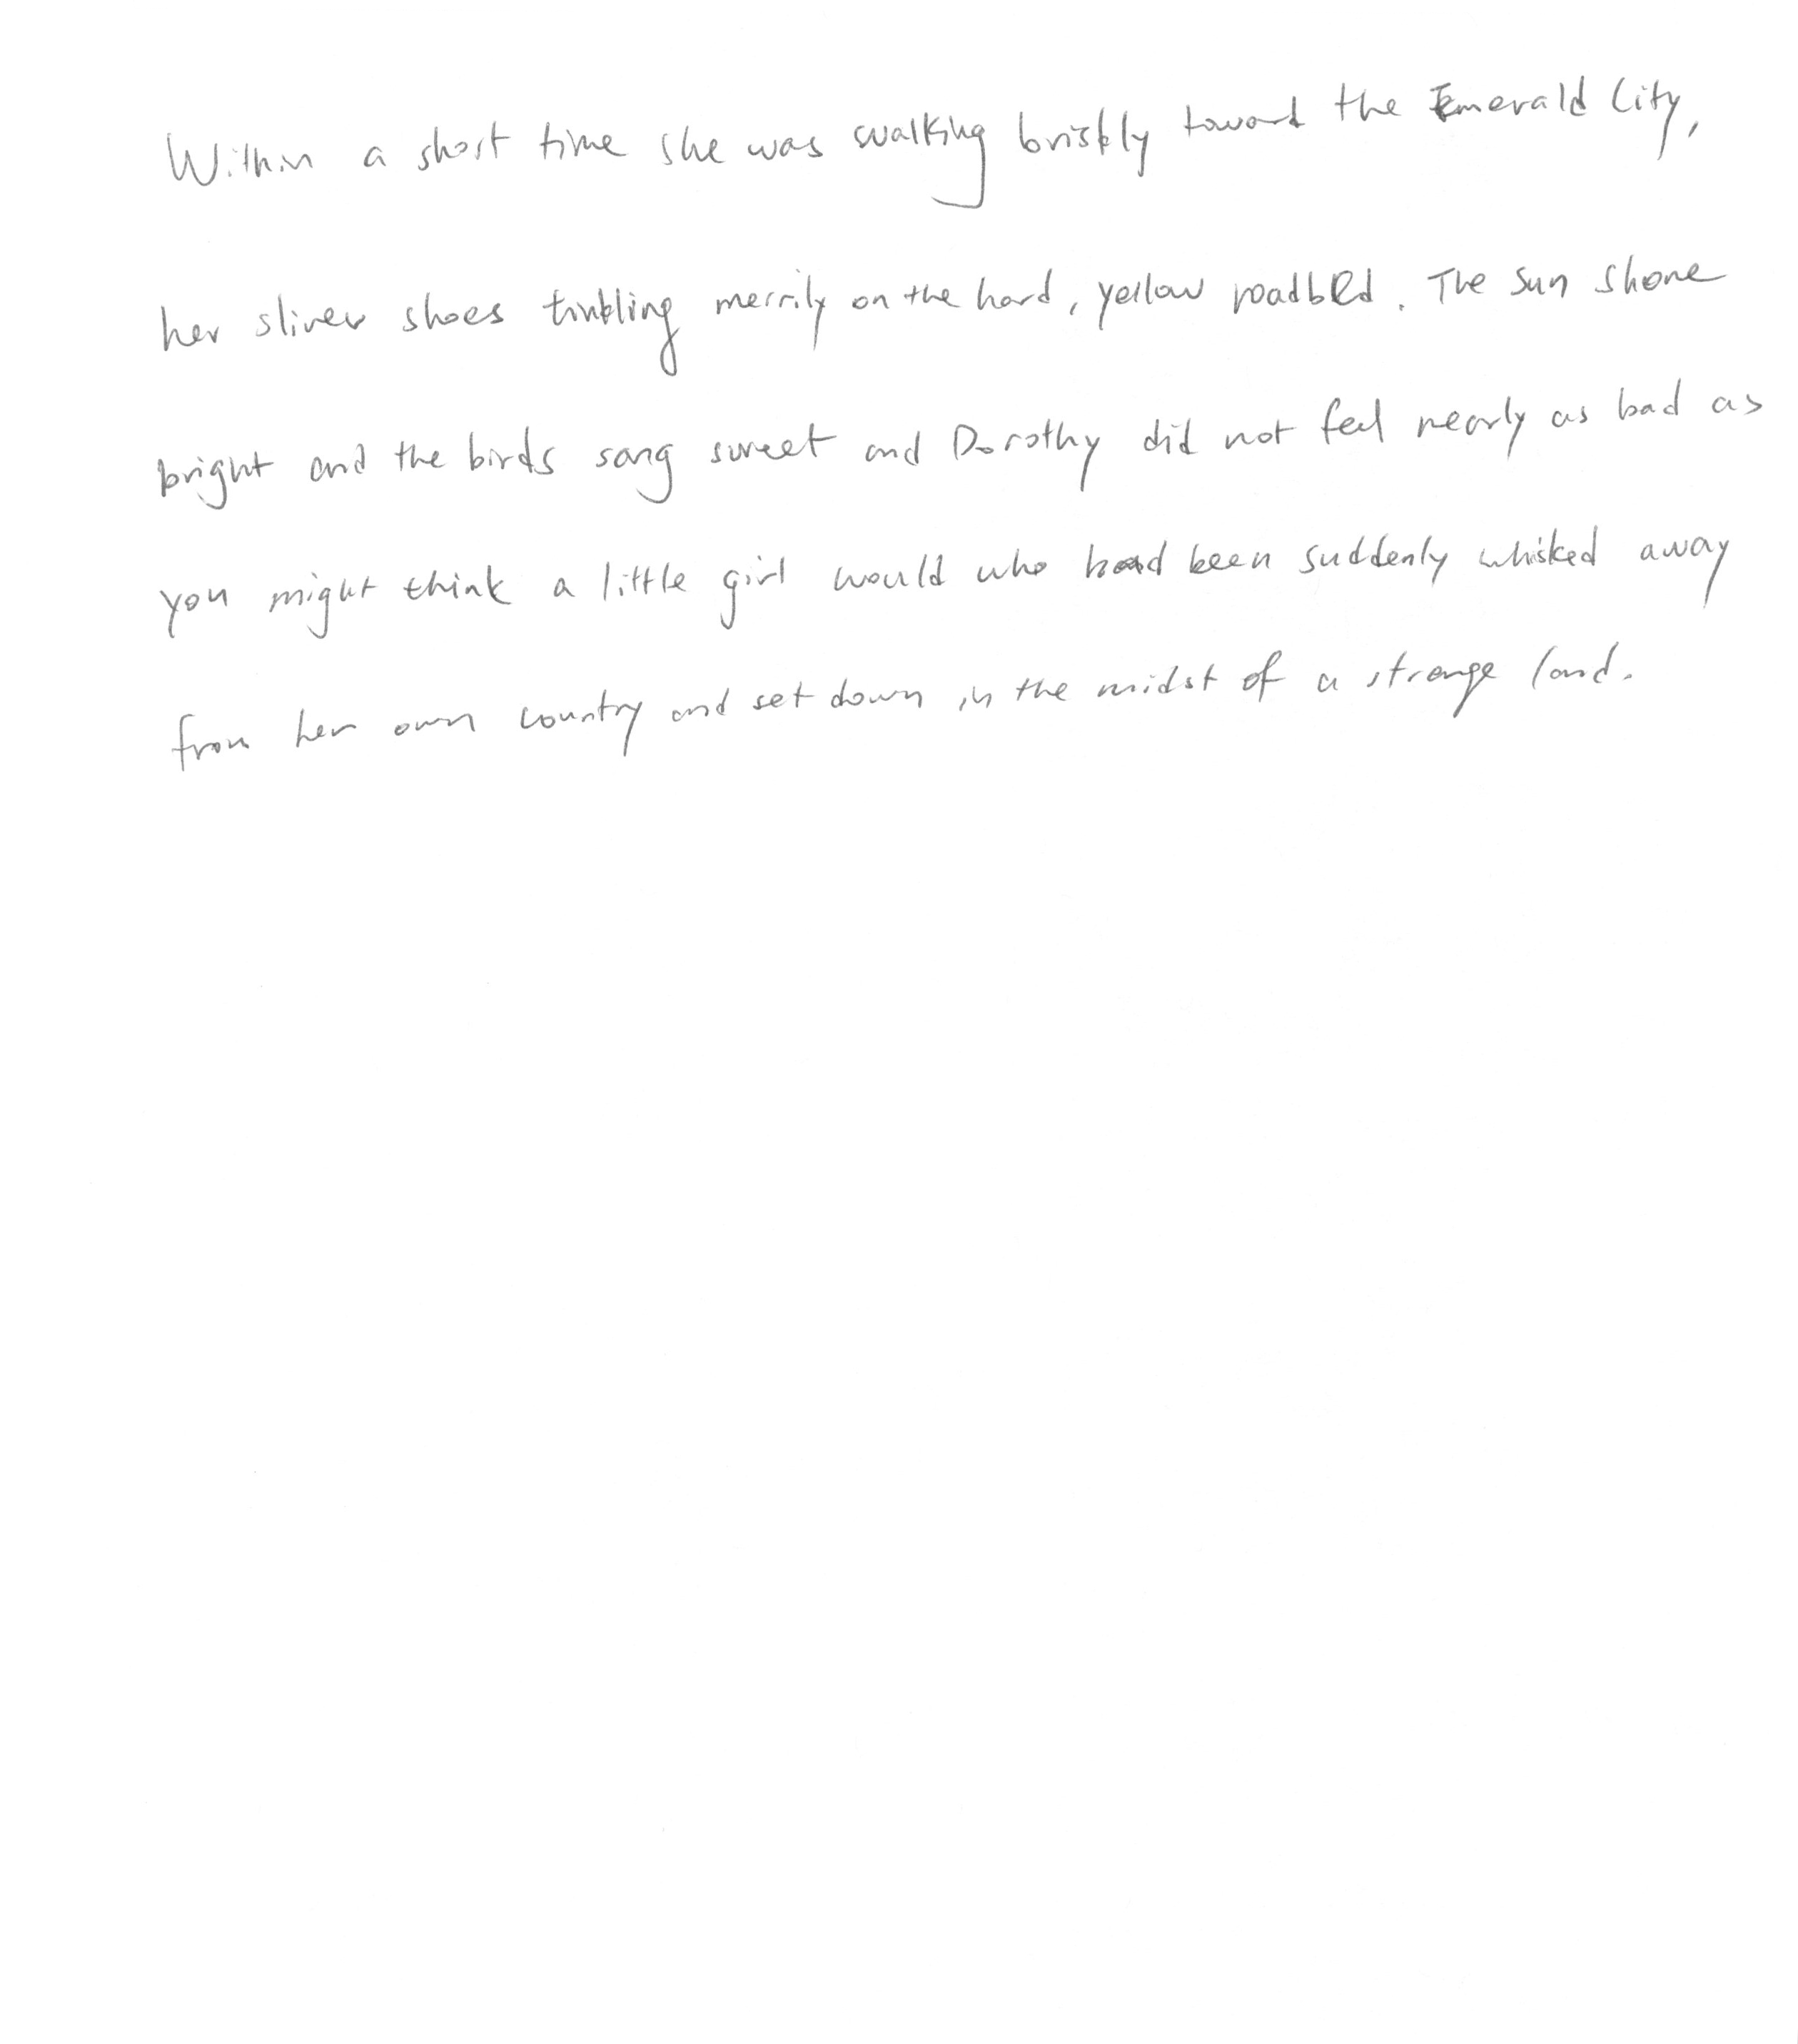 Within a short time she was walking briskly toward the Emerald City,
her sliver shoes tinkling merrily on the hard, yellow roadbed. The sun shone
bright and the birds sang sweet and Dorothy did not feel nearly as bad as
you might think a little girl would who had been suddenly whisked away
from her own country and set down in the midst of a strange land.